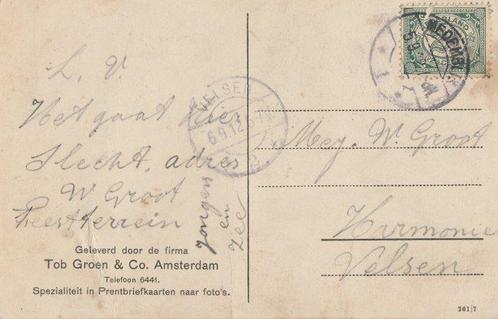 L. V.
Het gaat hier
Slecht, adres
W Groot
Feestterrein
jongens
en
zee
Geleverd door de firma
Tob Groen & Co. Amsterdam
Telefoon 6441.
Spezialiteit in Prentbriefkaarten naar foto's.
VELSEN
6.9.12
MEDEMB
Mej. W. Groot
Harmonie
Velsen
261|7